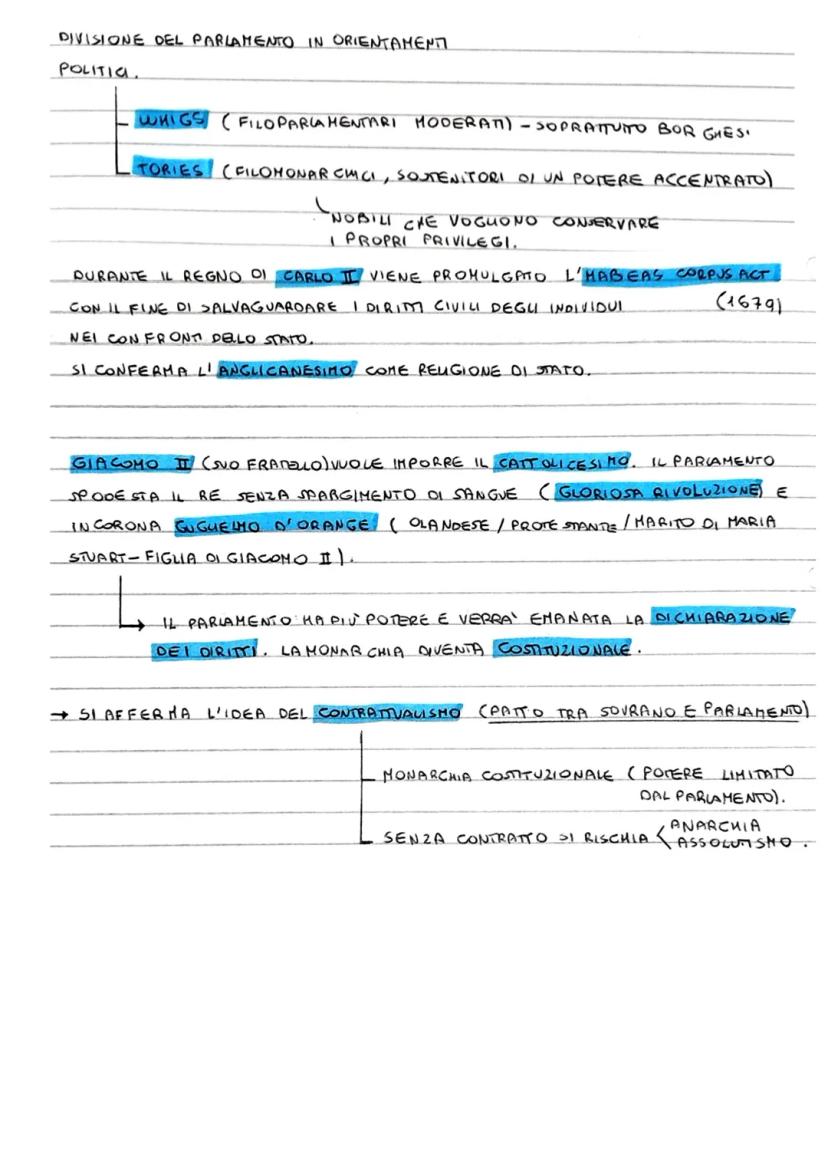 DIVISIONE DEL PARLAMENTO IN ORIENTAMENTI
POLITICI.
WHIGS (FILOPARLAMENTARI MODERATI) - SOPRATTUTTO BORGHESI
TORIES (FILOMONARCHICI, SOSTENITORI DI UN POTERE ACCENTRATO)
NOBILI CHE VOGLIONO CONSERVARE
I PROPRI PRIVILEGI.
DURANTE IL REGNO DI CARLO II VIENE PROMULGATO L'HABEAS CORPUS ACT
CON IL FINE DI SALVAGUARDARE I DIRITTI CIVILI DEGLI INDIVIDUI (1679)
NEI CONFRONTI DELLO STATO.
SI CONFERMA L'ANGLICANESIMO COME RELIGIONE DI STATO.
GIACOMO II (SUO FRATELLO) VUOLE IMPORRE IL CATTOLICESIMO. IL PARLAMENTO
SPODESTA IL RE SENZA SPARGIMENTO DI SANGUE (GLORIOSA RIVOLUZIONE) E
INCORONA GUGLIELMO D'ORANGE (OLANDESE / PROTESTANTE / MARITO DI MARIA
STUART - FIGLIA DI GIACOMO II).
→ IL PARLAMENTO HA PIÙ POTERE E VERRA' EMANATA LA DICHIARAZIONE
DEI DIRITTI. LA MONARCHIA DIVENTA COSTITUZIONALE.
→ SI AFFERMA L'IDEA DEL CONTRATTUALISMO (PATTO TRA SOVRANO E PARLAMENTO)
MONARCHIA COSTITUZIONALE (POTERE LIMITATO
DAL PARLAMENTO).
SENZA CONTRATTO SI RISCHIA < ANARCHIA
ASSOLUTISMO.